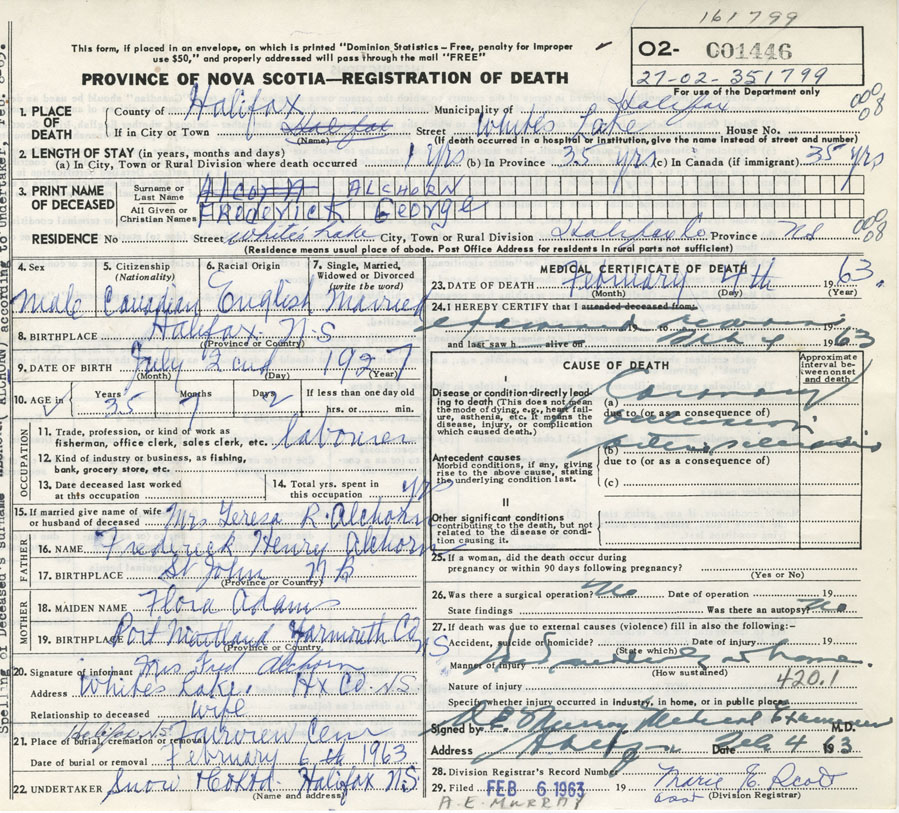 161799
This form, if placed in an envelope, on which is printed "Dominion Statistics—Free, penalty for improper
use $50," and properly addressed will pass through the mail "FREE"
02- C01446
27-02-351799
For use of the Department only
PROVINCE OF NOVA SCOTIA—REGISTRATION OF DEATH
1. PLACE OF DEATH
County of Halifax Municipality of Halifax
If in City or Town Halifax Street Whites Lake House No.
(Name) (If death occurred in a hospital or institution, give the name instead of street and number)
2. LENGTH OF STAY (in years, months and days)
(a) In City, Town or Rural Division where death occurred 1 yrs (b) In Province 35 yrs (c) In Canada (if immigrant) 35 yrs
3. PRINT NAME OF DECEASED
Surname or Last Name Alcorn ALCHORN
All Given or Christian Names FRederick George
RESIDENCE No Street White's Lake City, Town or Rural Division Halifax Co Province NS
(Residence means usual place of abode. Post Office Address for residents in rural parts not sufficient)
4. Sex 5. Citizenship (Nationality) 6. Racial Origin 7. Single, Married, Widowed or Divorced (write the word)
male Canadian English Married
8. BIRTHPLACE Halifax N-S
(Province or Country)
9. DATE OF BIRTH July 2nd 1927
(Month) (Day) (Year)
10. AGE in Years 35 Months 7 Days 2 If less than one day old
hrs. or min.
OCCUPATION
11. Trade, profession, or kind of work as
fisherman, office clerk, sales clerk, etc. labourer
12. Kind of industry or business, as fishing,
bank, grocery store, etc.
13. Date deceased last worked at this occupation 14. Total yrs. spent in this occupation yrs
15. If married give name of wife or husband of deceased Mrs Teresa R. Alchorn
FATHER
16. NAME Frederick Henry Alchorn
17. BIRTHPLACE St John NB
(Province or Country)
MOTHER
18. MAIDEN NAME Flora Adams
19. BIRTHPLACE Port Maitland Yarmouth Co NS
(Province or Country)
20. Signature of informant Mrs Fred Alchorn
Address Whites Lake. Hx Co. NS.
Relationship to deceased wife
21. Place of burial, cremation or removal Halifax NS Fairview Cem
Date of burial or removal February 6th 1963
22. UNDERTAKER Snow Halifax N.S.
(Name and address)
MEDICAL CERTIFICATE OF DEATH
23. DATE OF DEATH February 4th 1963.
(Month) (Day) (Year)
24. I HEREBY CERTIFY that I attended deceased from
examined remains 19 to 19
and last saw h alive on Feb 4 1963
CAUSE OF DEATH
Approximate interval between onset and death
I
Disease or condition directly leading to death (This does not mean the mode of dying, e.g., heart failure, asthenia, etc. It means the disease, injury, or complication which caused death.)
(a) Coronary
due to (or as a consequence of)
Antecedent causes
Morbid conditions, if any, giving rise to the above cause, stating the underlying condition last.
(b)
due to (or as a consequence of)
(c)
II
Other significant conditions contributing to the death, but not related to the disease or condition causing it.
25. If a woman, did the death occur during
pregnancy or within 90 days following pregnancy?
(Yes or No)
26. Was there a surgical operation? No Date of operation 19
State findings Was there an autopsy? No
27. If death was due to external causes (violence) fill in also the following:—
Accident, suicide or homicide? Date of injury 19
(State which)
Manner of injury suddenly at home.
(How sustained)
Nature of injury 420.1
Specify whether injury occurred in industry, in home, or in public places
Signed by A E Murray Medical Examiner M.D.
Address Date Feb 4 1963
28. Division Registrar's Record Number
29. Filed FEB 6 1963 19 Marie E. Scott
A.E. MURRAY (Division Registrar)